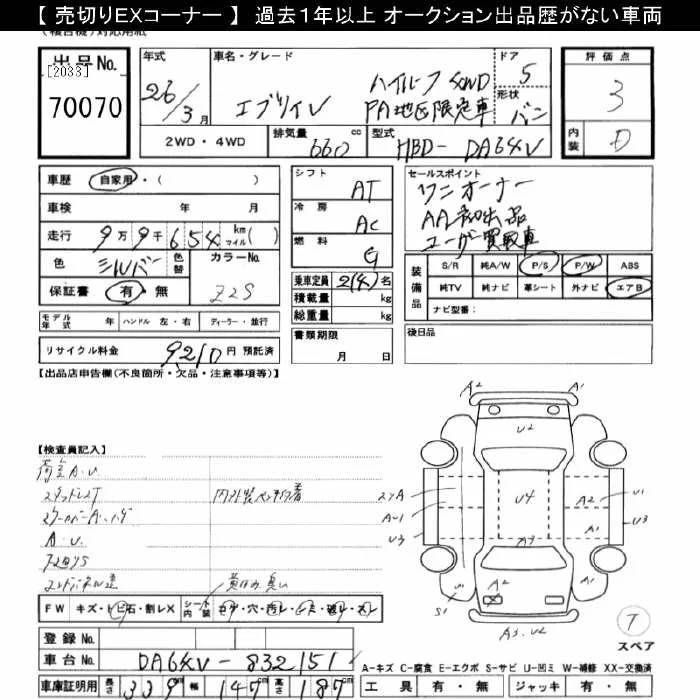 【 売切りEXコーナー 】 過去1年以上 オークション出品歴がない車両
出品No.
[2033]
70070
年式
26/3月
車名・グレード
エブリイV
ハイルーフ 4WD
PA地区限定車
ドア
5
形状
バン
評価点
3
内装
D
2WD・4WD
排気量
660 cc
型式
HBD- DA64V
車歴 自家用・( )
車検 年 月
走行 9万9千654 km マイル( )
色 シルバー 色替 カラーNo.
保証書 有・無 Z2S
モデル年式 年 ハンドル 左・右 ディーラー・並行
リサイクル料金 9210円 預託済
シフト AT
冷房 AC
燃料 G
乗車定員 2(4)名
積載量 kg
総重量 kg
書類期限
月 日
セールスポイント
ワンオーナー
AA初出品
ユーザー買取車
装備品
S/R 純A/W P/S P/W ABS
純TV 純ナビ 革シート 外ナビ エアB
ナビ型番:
後日品
【出品店申告欄(不良箇所・欠品・注意事項等)】
【検査員記入】
荷室A.U
スタッドレスT
A.U
FW キズ・トビ石・割レX シート内装
登録No.
車台No. DA64V-832151
車庫証明用 長さ 339cm 幅 147cm 高さ 187cm
A2 A1
U2
U4
A2
U1
U3
A1
A-1
U3
A3
A2
U1
S1
A3.U2
T
スペア
A-キズ C-腐食 E-エクボ S-サビ U-凹ミ W-補修 XX-交換済
工具 有・無 ジャッキ 有・無